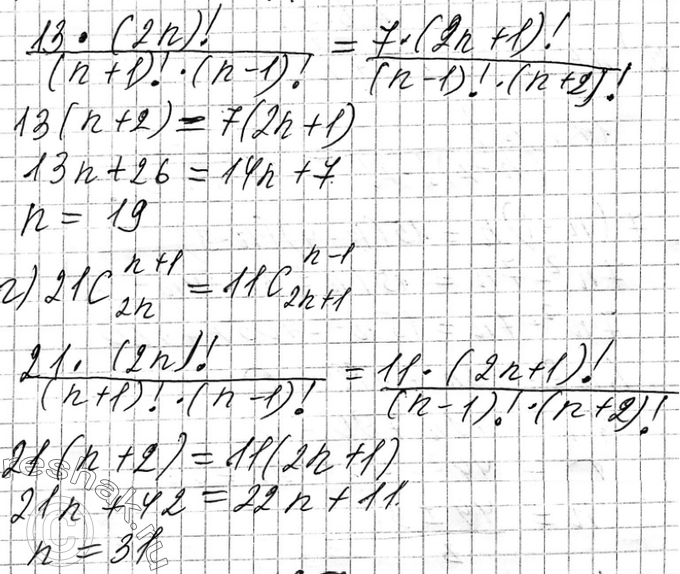 13 · (2n)! / (n+1)! · (n-1)! = 7 · (2n+1)! / (n-1)! · (n+2)!
13(n+2) = 7(2n+1)
13n+26 = 14n+7
n = 19
г) 21C_{2n}^{n+1} = 11C_{2n+1}^{n-1}
21 · (2n)! / (n+1)! · (n-1)! = 11 · (2n+1)! / (n-1)! · (n+2)!
21(n+2) = 11(2n+1)
21n+42 = 22n+11
n = 31
reshak.ru